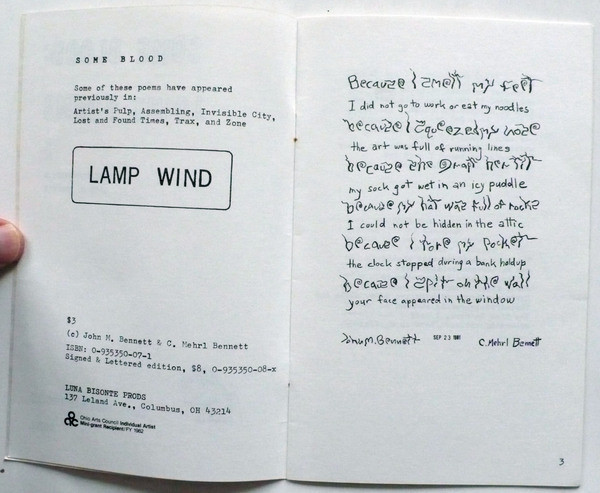 SOME BLOOD
Some of these poems have appeared
previously in:
Artist's Pulp, Assembling, Invisible City,
Lost and Found Times, Trax, and Zone
LAMP WIND
$3
(c) John M. Bennett & C. Mehrl Bennett
ISBN: 0-935350-07-1
Signed & Lettered edition, $8, 0-935350-08-x
LUNA BISONTE PRODS
137 Leland Ave., Columbus, OH 43214
Ohio Arts Council Individual Artist
Mini-grant Recipient/FY 1982
Because I smell my feet
I did not go to work or eat my noodles
because I squeezed my nose
the art was full of running lines
because she
my sock got wet in an icy puddle
because my hat was full of rocks
I could not be hidden in the attic
because I tore my pocket
the clock stopped during a bank holdup
because I spit on the wall
your face appeared in the window
John M. Bennett SEP 23 1981 C. Mehrl Bennett
3